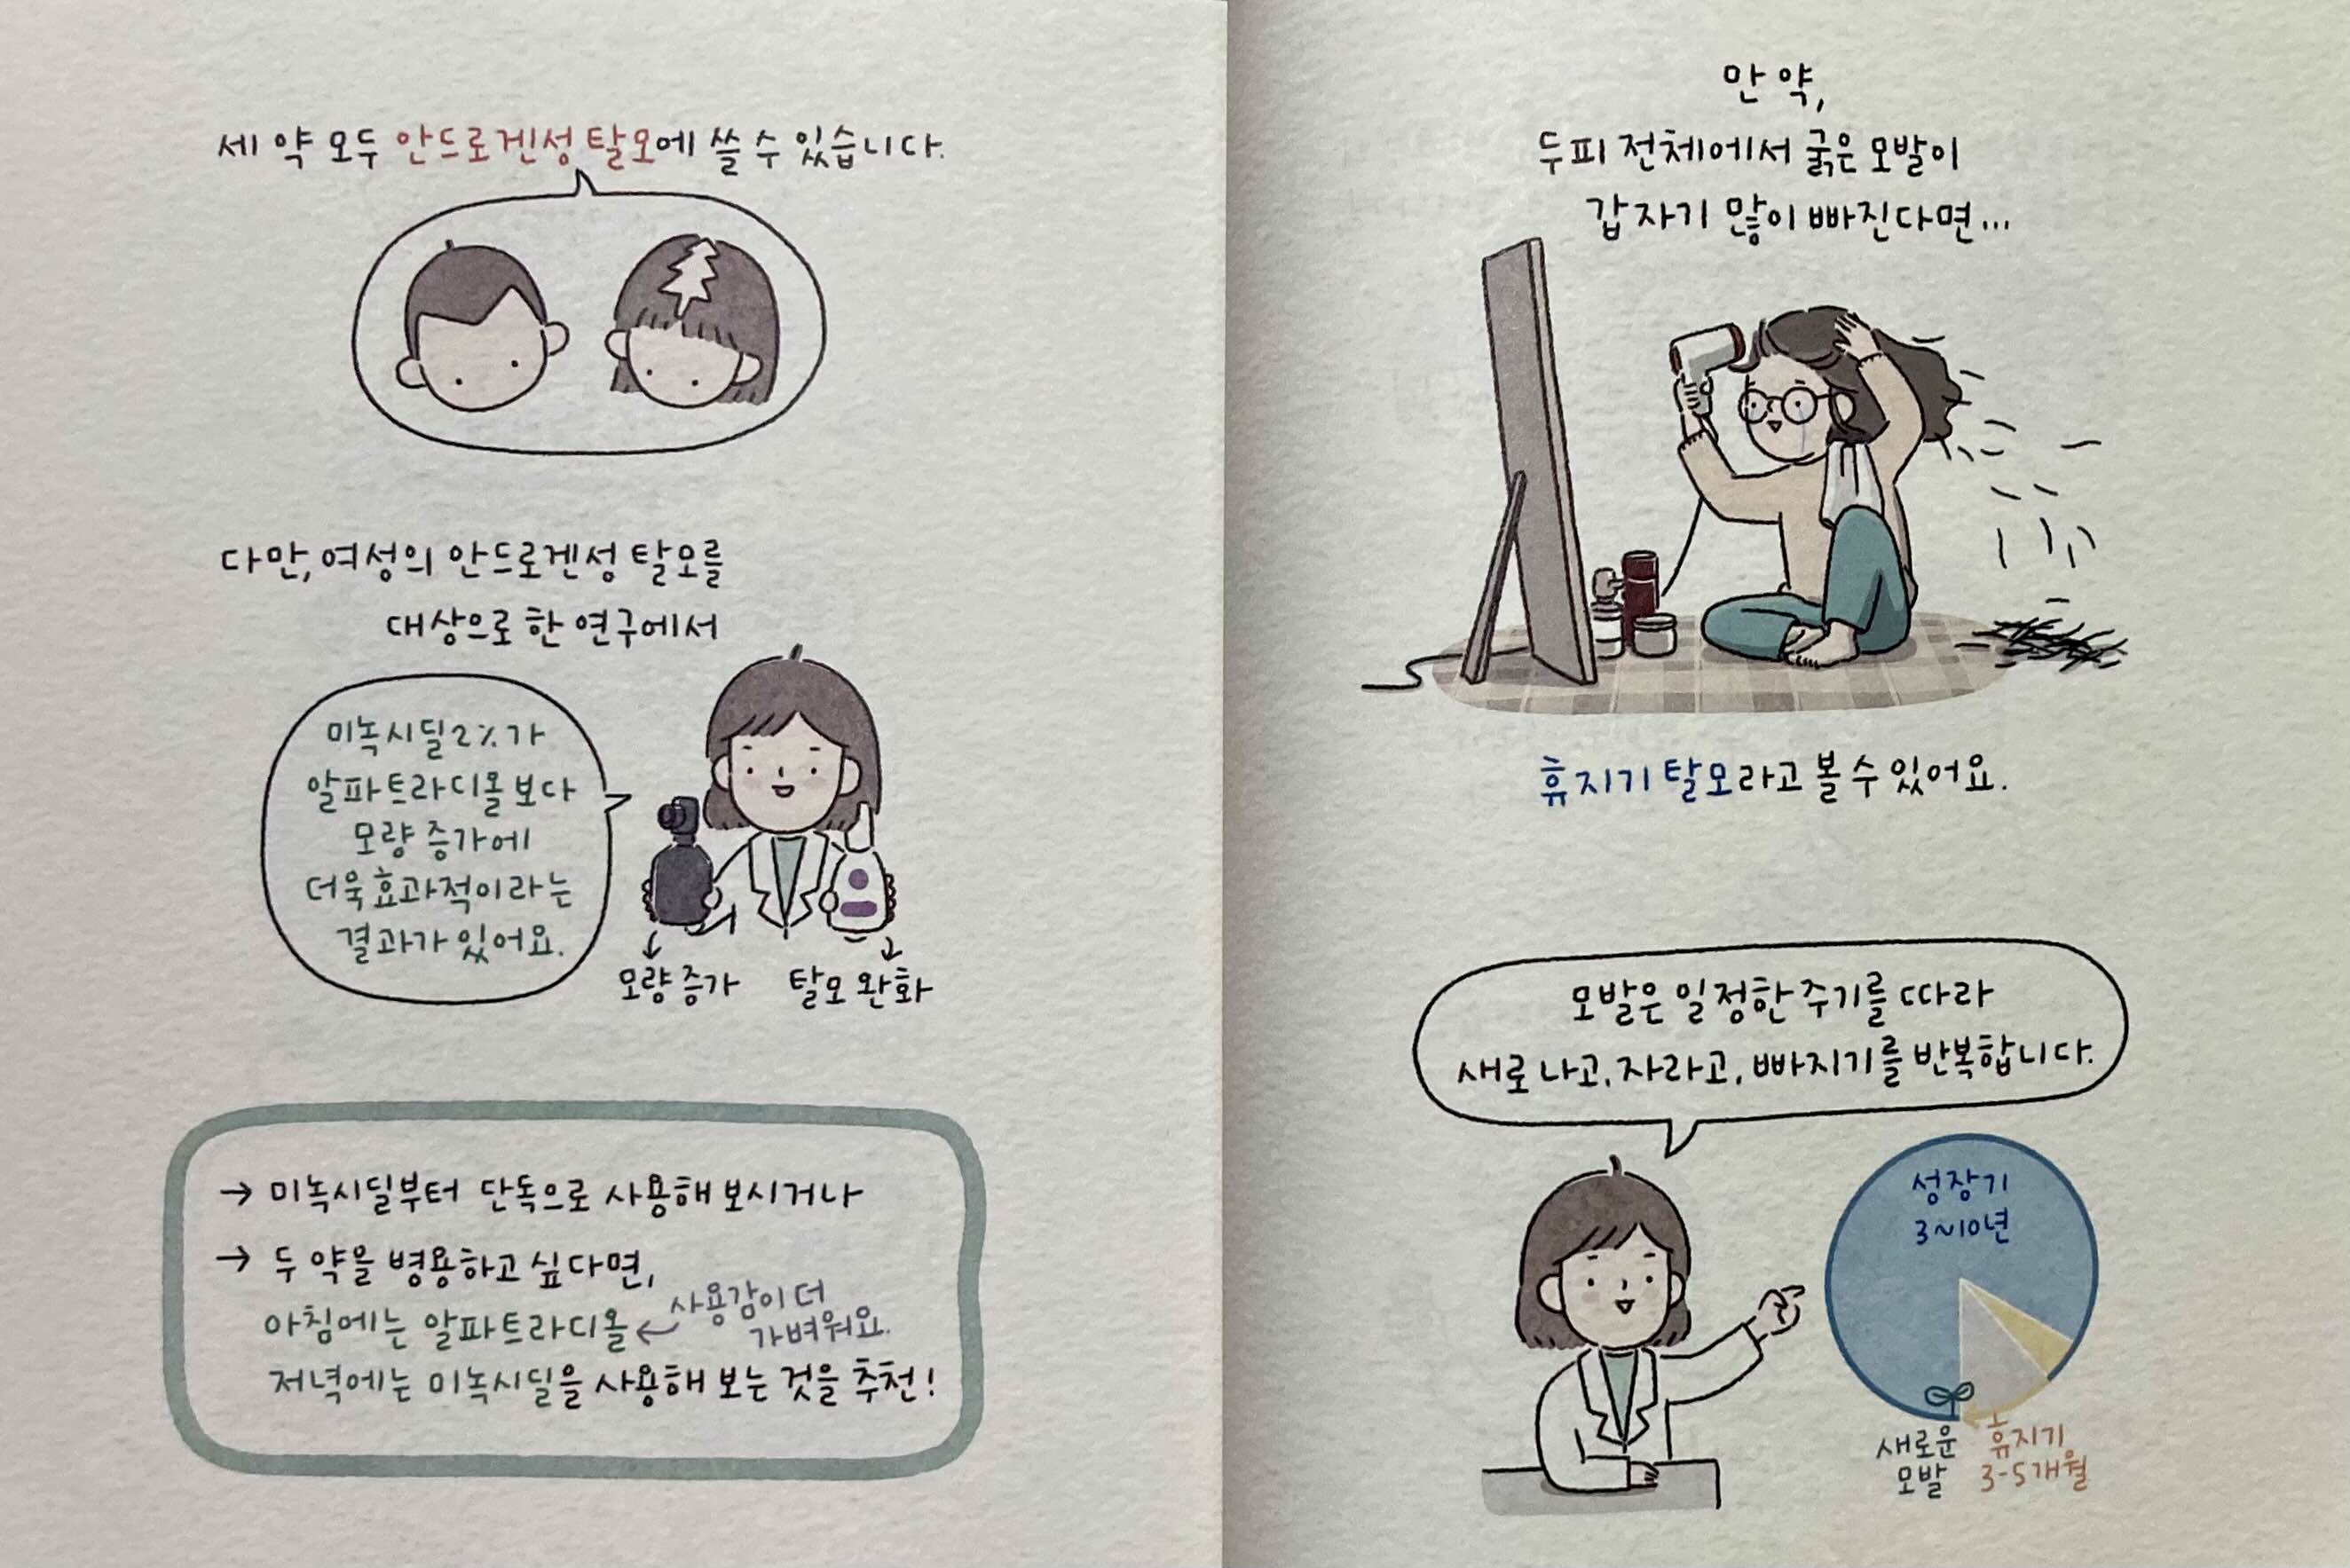 세 약 모두 안드로겐성 탈모에 쓸 수 있습니다.
다만, 여성의 안드로겐성 탈모를
대상으로 한 연구에서
미녹시딜 2%가
알파트라디올보다
모량 증가에
더욱 효과적이라는
결과가 있어요.
모량 증가
탈모 완화
→ 미녹시딜부터 단독으로 사용해 보시거나
→ 두 약을 병용하고 싶다면,
아침에는 알파트라디올
사용감이 더
가벼워요.
저녁에는 미녹시딜을 사용해 보는 것을 추천!
만약,
두피 전체에서 굵은 모발이
갑자기 많이 빠진다면...
휴지기 탈모라고 볼 수 있어요.
모발은 일정한 주기를 따라
새로 나고, 자라고, 빠지기를 반복합니다.
성장기
3~10년
새로운
모발
휴지기
3-5개월